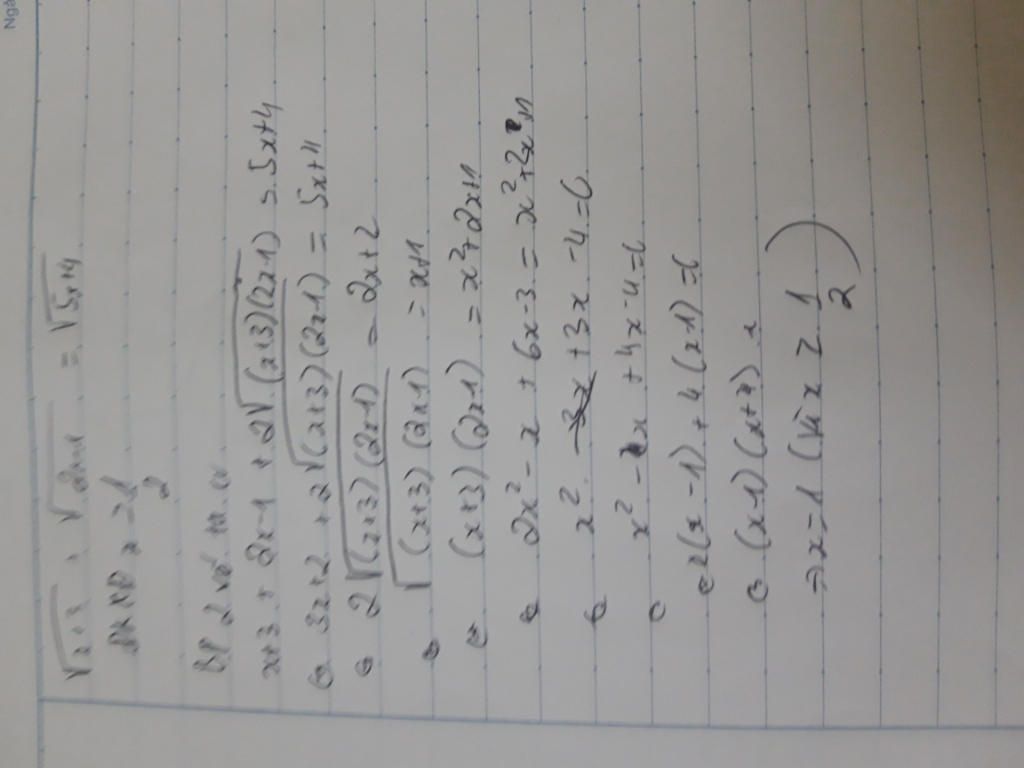 Ngà
√x+3 + √2x-1 = √5x+4
ĐKXĐ x ≥ 1/2
BP 2 vế ta có
x+3 + 2x-1 + 2√(x+3)(2x-1) = 5x+4
⇔ 3x+2 + 2√(x+3)(2x-1) = 5x+4
⇔ 2√(x+3)(2x-1) = 2x+2
⇔ √(x+3)(2x-1) = x+1
⇔ (x+3)(2x-1) = x²+2x+1
⇔ 2x²-x+6x-3 = x²+2x+1
⇔ x² +3x-4=0
⇔ x²-x+4x-4=0
⇔ x(x-1)+4(x-1)=0
⇔ (x-1)(x+4)
⇒ x=1 (Vì x ≥ 1/2)